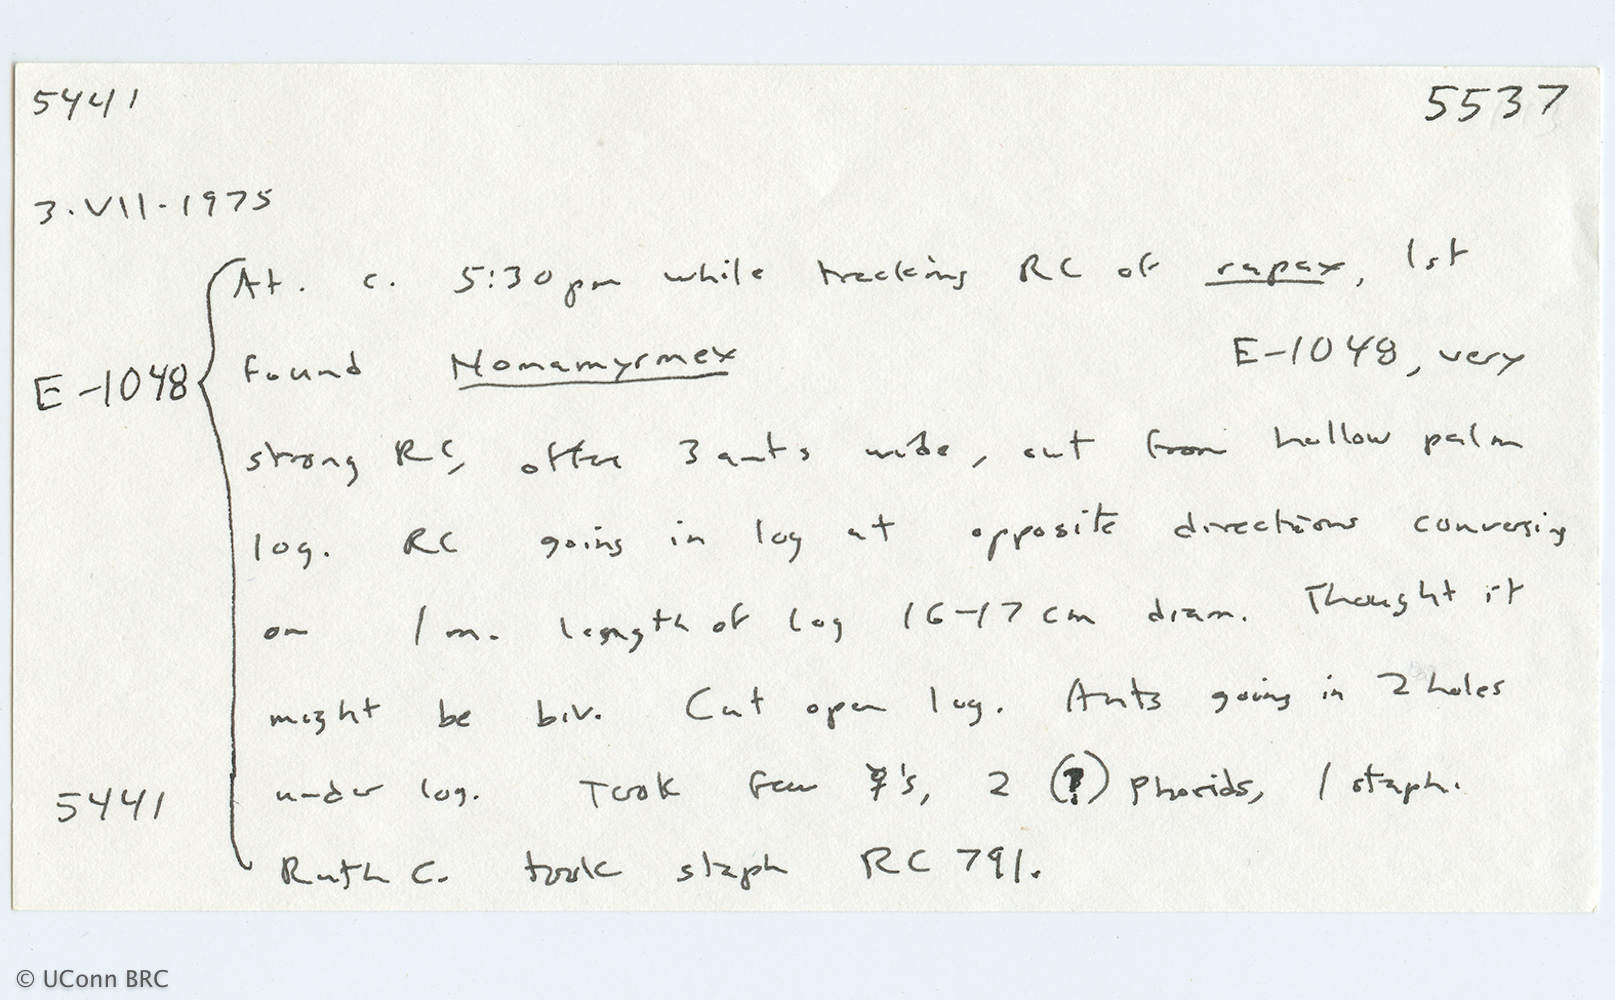 5441 5537
3.VII.1975
At. c. 5:30pm while tracking RC of rapax, 1st
found Nomamyrmex E-1048, very
E-1048
strong RC, often 3 ants wide, out from hollow palm
log. RC going in log at opposite directions converging
on 1 m. length of log 16-17 cm diam. Thought it
might be biv. Cut open log. Ants going in 2 holes
under log. Took few ☿'s, 2 (?) Phorids, 1 staph.
5441
Ruth C. took staph RC 791.
© UConn BRC